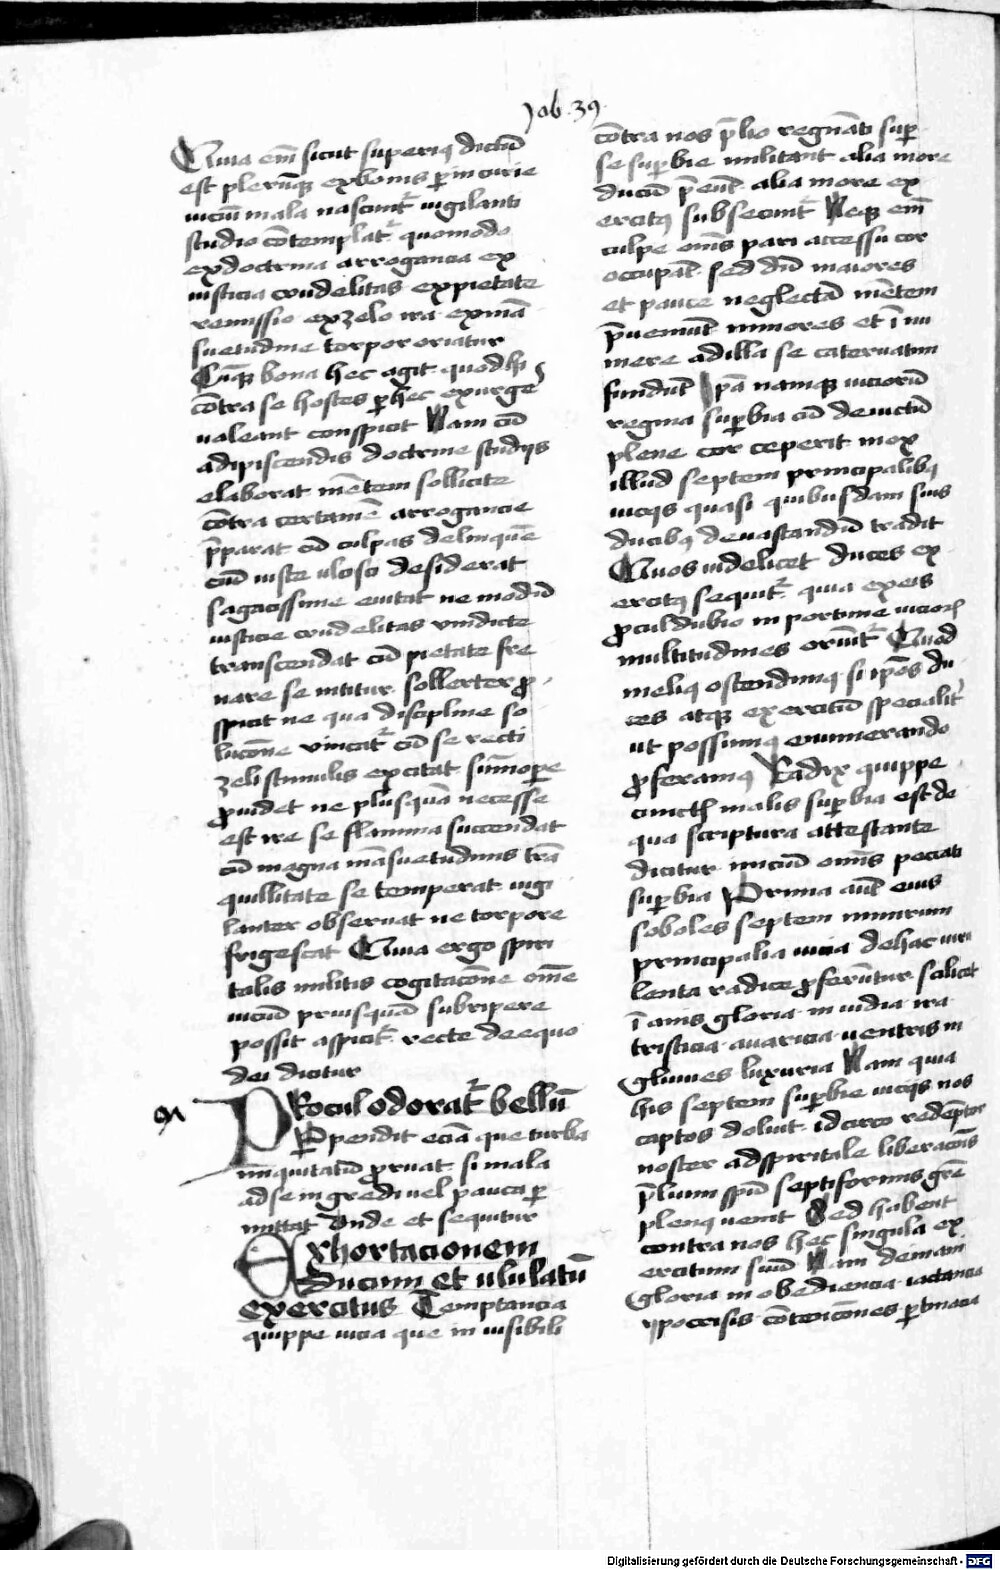 Job. 39
Quia em̄ sicut superiꝯ dictū
est pleruͫqꝫ ex bonis ꝑ incurie
uiciū mala nascunt᷑ uigilanti
studio cōtemplat᷑ quomodo
ex doctrina arrogancia ex
iusticia crudelitas ex pietate
remissio ex zelo ira ex mā
suetudine torpor oriatur
Cūqꝫ bona hec agit quod hꝰ
cōtra se hostes ꝑ hec exurge
ualeant conspicit Nam cū
adipiscendis doctrine studijs
elaborat mētem sollicite
cōtra certamē arrogancie
p̄parat cū culpas delinquē
ciū iuste ulcisci desiderat
sagacissime euitat ne modū
iusticie crudelitas vindicte
transcendat cū pietate fre
nare se nititur sollerter ꝓ
spicit ne qua discipline so
lucōne vincat᷑ cū se recti
zeli stimulis excitat sūmoꝑe
ꝓuidet ne plusquā necesse
est ire se flamma succendat
cū magna māsuetudinis trā
quillitate se temperat uigi
lanter obseruat ne torpore
frigescat Quia ergo spiri
talis militis cogitacōne om̄e
uiciū priusquā subripere
possit aspicit᷑ recte de equo
dei dicitur
PRocul odorat᷑ bellū
Perpendit eciā que turba
iniquitatū ꝓruat si mala
ad se ingredi uel pauca ꝑ
mittat Unde et sequitur
Exhortacionem
ducum et ululatū
exercitus Temptancia
quippe uicia que inuisibili
cōtra nos p̄lio regnāti suꝑ
se suꝑbie militant alia more
ducū p̄eunt᷑ alia more ex
ercitꝯ subsecunt᷑ Neqꝫ em̄
culpe om̄s pari accessu cor
occupāt᷑ sed dū maiores
et pauce neglectā mētem
p̄ueniūt minores et īnu
mere ad illa se cateruatim
fundūt Ipā namqꝫ uiciorū
regina suꝑbia cū deuictū
plene cor ceperit mox
illud septem principalibꝯ
uicijs quasi quibusdam suis
ducibꝯ deuastandū tradit
Quos uidelicet duces ex
ercitꝯ sequit᷑ quia ex eis
ꝓculdubio inportune uicioꝝ
multitudines oriūt᷑ Quod
meliꝯ ostendimꝯ si ip̄os du
ces atqꝫ exercitū specialit᷑
ut possumꝯ enumerando
ꝓferamꝯ Radix quippe
cuncti malis suꝑbia est de
qua scriptura attestante
dicitur iniciū om̄is peccati
suꝑbia Prima aūt eius
soboles septem nimirum
principalia uicia de hac uiru
lenta radice ꝓferūtur scilicet
īanis gloria inuidia ira
tristicia auaricia uentris in
gluuies luxuria Nam quia
his septem suꝑbie uicijs nos
captos doluit idcirco redēptor
noster ad spiritale liberacōis
p̄lium spū septiformis grē
plenꝯ uenit Sed habent
contra nos hec singula ex
ercitum suū Nam de inani
gloria inobediencia iactancia
ypocrisis cōtencōnes ꝑtinacia